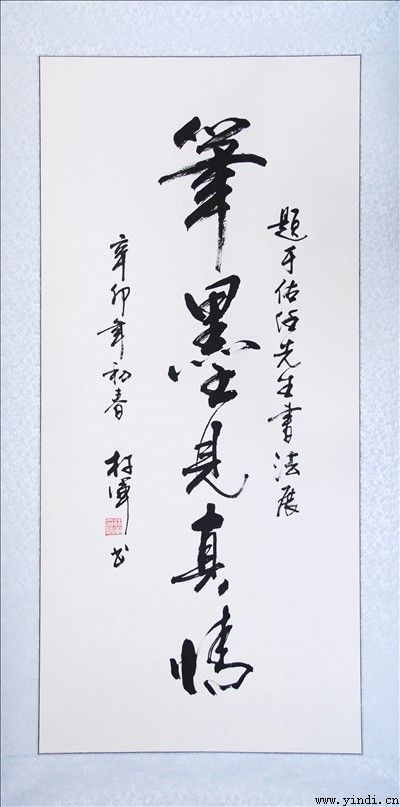 题于佑任先生書法展
筆墨見真情
辛卯年初春
书
www.yindi.cn